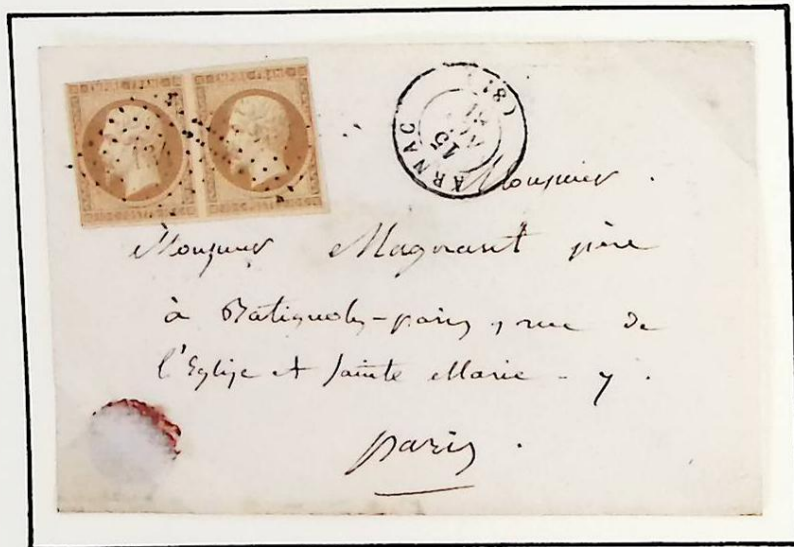 ARNAC
15
(81)
Monsieur.
Monsieur Magnant père
à Batignoles-paris, rue de
l'Eglise et Sainte Marie - 7.
paris.